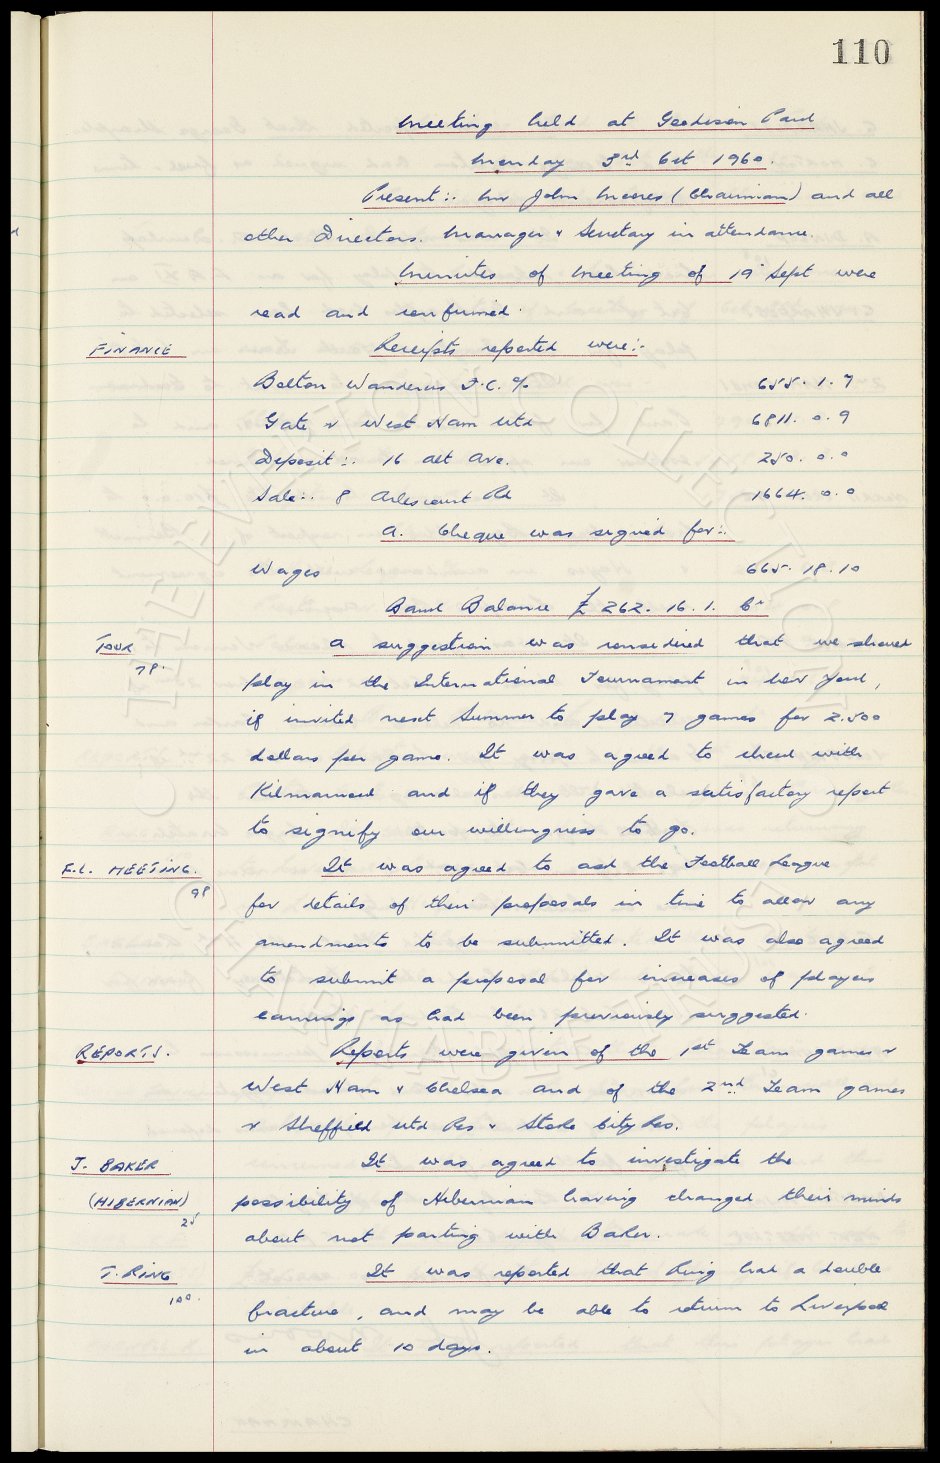 110
Meeting held at Goodison Park
Monday 3rd Oct 1960.
Present:. Mr John Moores (Chairman) and all
other Directors. Manager & Secretary in attendance.
Minutes of Meeting of 19th Sept were
read and confirmed.
FINANCE Receipts reported were:.
Bolton Wanderers F.C. % 655. 1. 7
Gate v West Ham Utd 6811. 0. 9
Deposit:. 16 Alt Ave. 250. 0. 0
Sale:. 8 Arlescourt Rd 1664. 0. 0
A. Cheque was signed for:.
Wages 665. 18. 10
Bank Balance £ 262. 16. 1. Cr
TOUR A suggestion was considered that we should
78. play in the International Tournament in New York,
if invited next Summer to play 7 games for 2.500
dollars per game. It was agreed to check with
Kilmarnock and if they gave a satisfactory report
to signify our willingness to go.
F.L. MEETING. It was agreed to ask the Football League
98 for details of their proposals in time to allow any
amendments to be submitted. It was also agreed
to submit a proposal for increases of players
earnings as had been previously suggested.
REPORTS. Reports were given of the 1st Team games v
West Ham & Chelsea and of the 2nd Team games
v Sheffield Utd Res & Stoke City Res.
J. BAKER It was agreed to investigate the
(HIBERNIAN) possibility of Hibernian having changed their minds
25 about not parting with Baker.
T. RING It was reported that Ring had a double
100. fracture, and may be able to return to Liverpool
in about 10 days.
THE EVERTON COLLECTION